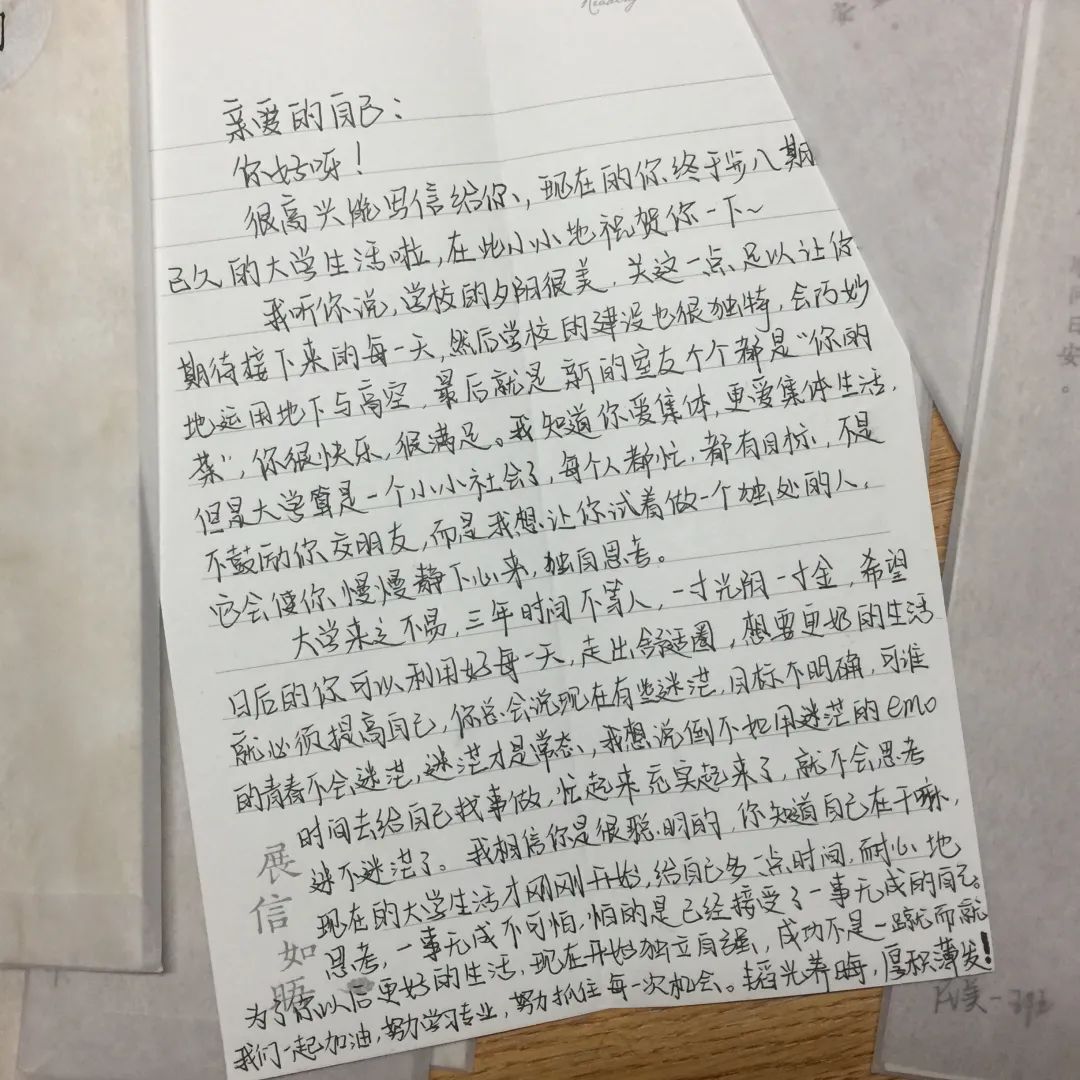 Reading
亲爱的自己：
你好呀！
很高兴能写信给你，现在的你终于步入期
已久的大学生活啦，在此小小地祝贺你一下~
我听你说，学校的夕阳很美，关这一点足以让你
期待接下来的每一天，然后学校的建设也很独特，会巧妙
地运用地下与高空，最后就是新的室友个个都是“你的
菜”，你很快乐，很满足。我知道你爱集体，更爱集体生活，
但是大学算是一个小小社会了，每个人都忙，都有目标，不是
不鼓励你交朋友，而是我想让你试着做一个独处的人，
它会使你慢慢静下心来，独自思考。
大学来之不易，三年时间不等人，一寸光阴一寸金，希望
日后的你可以利用好每一天，走出舒适圈，想要更好的生活
就必须提高自己，你总会说现在有些迷茫，目标不明确，可谁
的青春不会迷茫，迷茫才是常态，我想说倒不如用迷茫的emo
时间去给自己找事做，忙起来充实起来了，就不会思考
迷不迷茫了。我相信你是很聪明的，你知道自己在干嘛，
现在的大学生活才刚刚开始，给自己多一点时间，耐心地
思考，一事无成不可怕，怕的是已经接受了一事无成的自己。
为了你以后更好的生活，现在开始独立自强，成功不是一蹴而就
我们一起加油，努力学习专业，努力抓住每一次机会。韬光养晦，厚积薄发！
展信如晤
问日安。